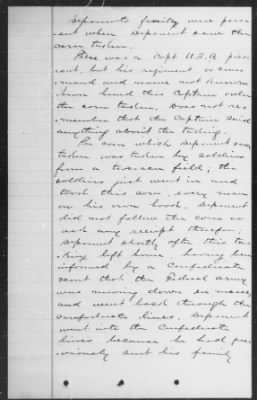 deponents family were pres-
ent when deponent saw the
corn taken.
There was a Capt U.S.A. pres-
ent, but his regiment or com-
mand and name not known.
heard this Captain order
the corn taken, does not re-
member that the Captain said
anything about the taking.
The corn which deponent saw
taken was taken by soldiers
from a ten acre field; the
soldiers just went in and
took this corn, every man
on his own hook, deponent
did not follow the corn or
ask any receipt therefor;
deponent shortly after this ta-
king left home, having been
informed by a Confederate
that the Federal army
was moving down en masse
and went back through the
Confederate lines. Deponent
went into the Confederate
lines because he had pre-
viously sent his family